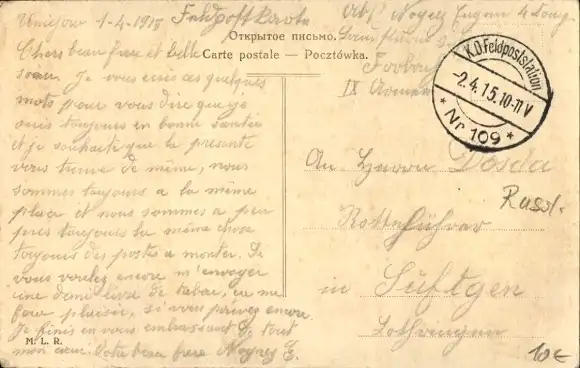 1-4-1915 Feldpostkarte
Открытое письмо.
Carte postale — Pocztówka.
Chers beau frere et belle
soeur. Je vous ecris ces quelques
mots pour vous dire que je
suis toujours en bonne santée
et je souhaite que la presente
vous trouve de même, nous
sommes toujours a la même
place et nous sommes a peu
pres toujours la même chose
toujours des postes a monter. Si
vous voulez encore m'envoyer
une demi livre de tabac, ca me
fera plaisir, si vous pouvez encore.
Je finis en vous embrassant de tout
mon coeur. Votre beau frere Noyrez E.
M. L. R.
Noyrez Eugen 4
IX
K.D.Feldpoststation
-2.4.15.10-11V
* Nr 109 *
An Herrn Dosda
Russl.
Rottenführer
in Püftgen
Lothringen
10€